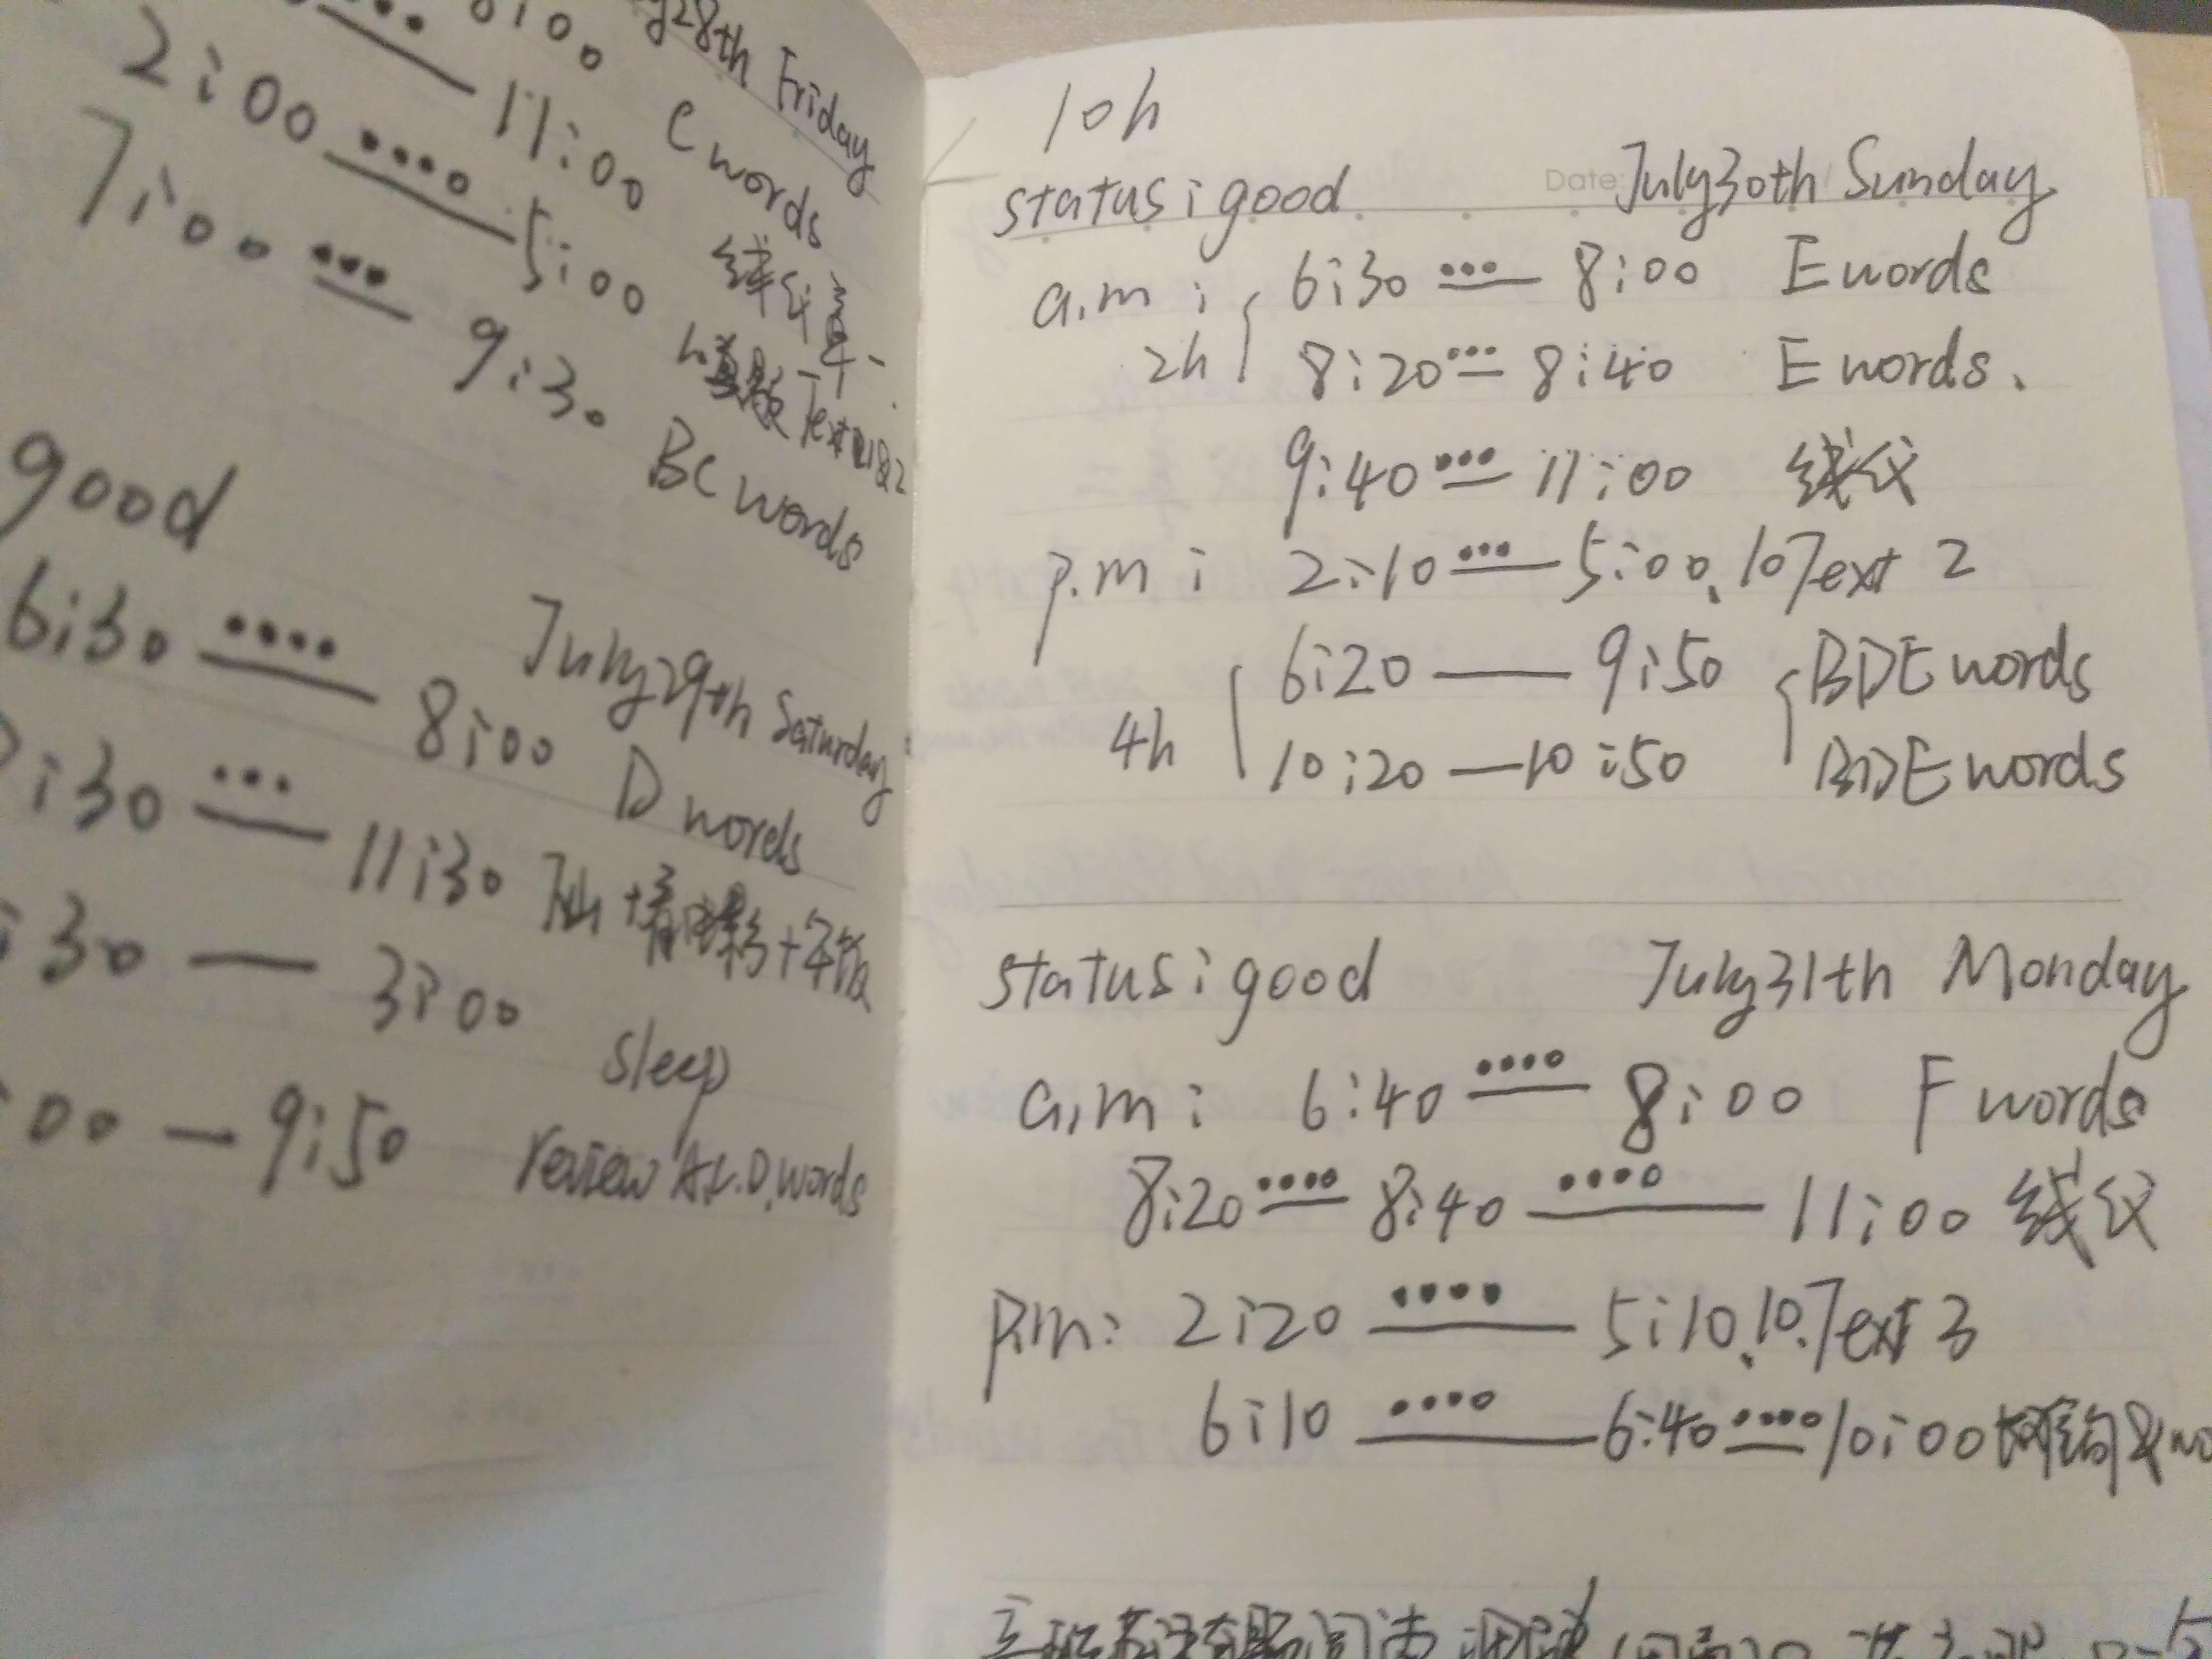 28th Friday
8:00
11:00 C words
2:00 .... 5:00 线代第一
真题 Text 1&2
7:00 ... 9:30 BC words
good
July 29th Saturday
6:30 .... 8:00 D words
:30 ... 11:30 +看电影+午饭
:30 — 3:00 sleep
:00 — 9:50 review A.C.D. words
10h
status: good Date July 30th Sunday
a.m: 6:30 ... — 8:00 E words
2h 8:20 ... — 8:40 E words.
9:40 ... — 11:00 线代
p.m: 2:10 ... — 5:00. 10 Text 2
6:20 — 9:50 BDE words
4h 10:20 — 10:50 BDE words
status: good July 31th Monday
a.m: 6:40 .... — 8:00 F words
8:20 .... 8:40 .... — 11:00 线代
p.m: 2:20 .... 5:10. 10. Text 3
6:10 .... — 6:40 .... 10:00 长难句 &